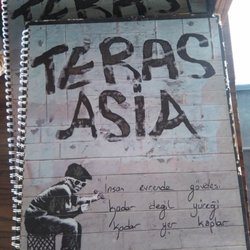 TERAS
ASİA
İnsan evrende gövdesi
kadar değil yüreği
kadar yer kaplar